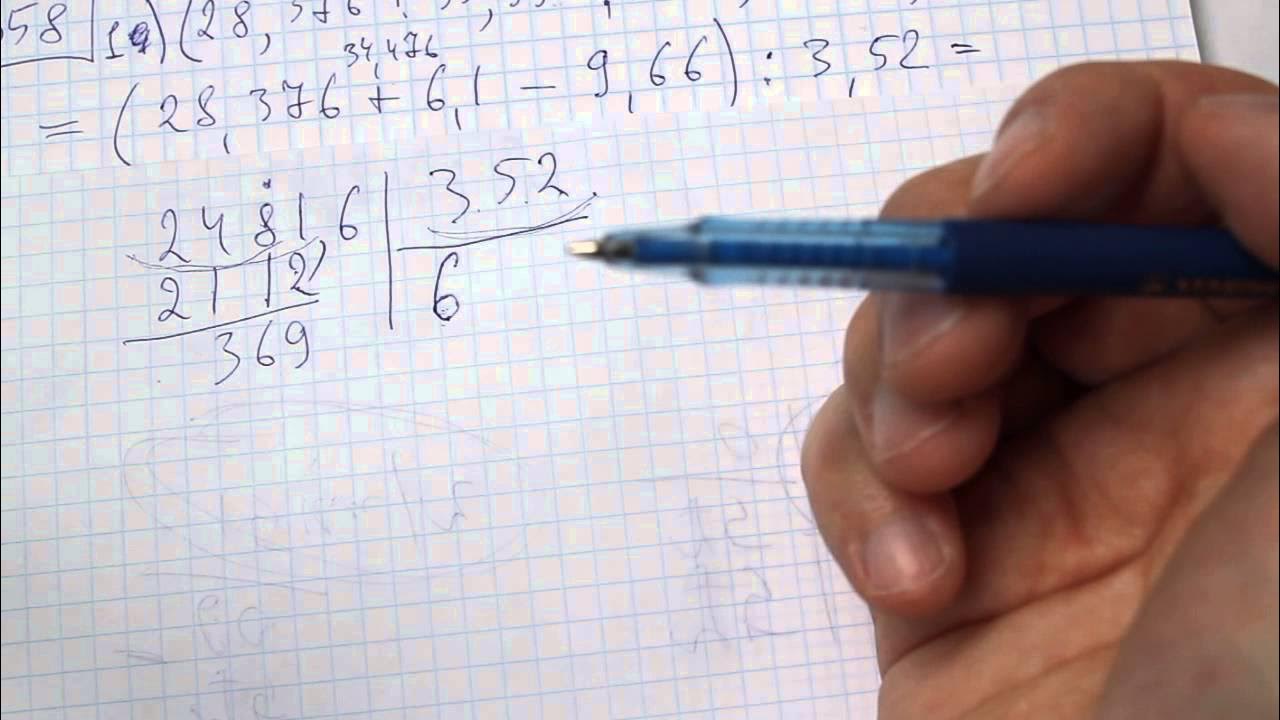 58 19) (28,376 :
34,476
= (28,376 + 6,1 - 9,66) : 3,52 =
24 81,6 3.52
21 12 6
369